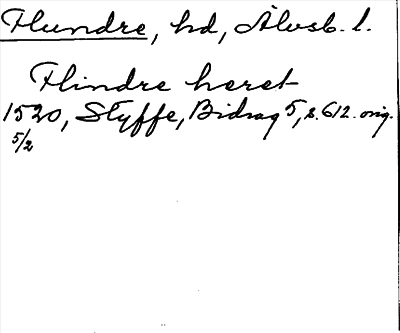 Flundre, hd, Älvsb. l.
Flindre heret
1520, Styffe, Bidrag 5, s. 612. orig.
5/2